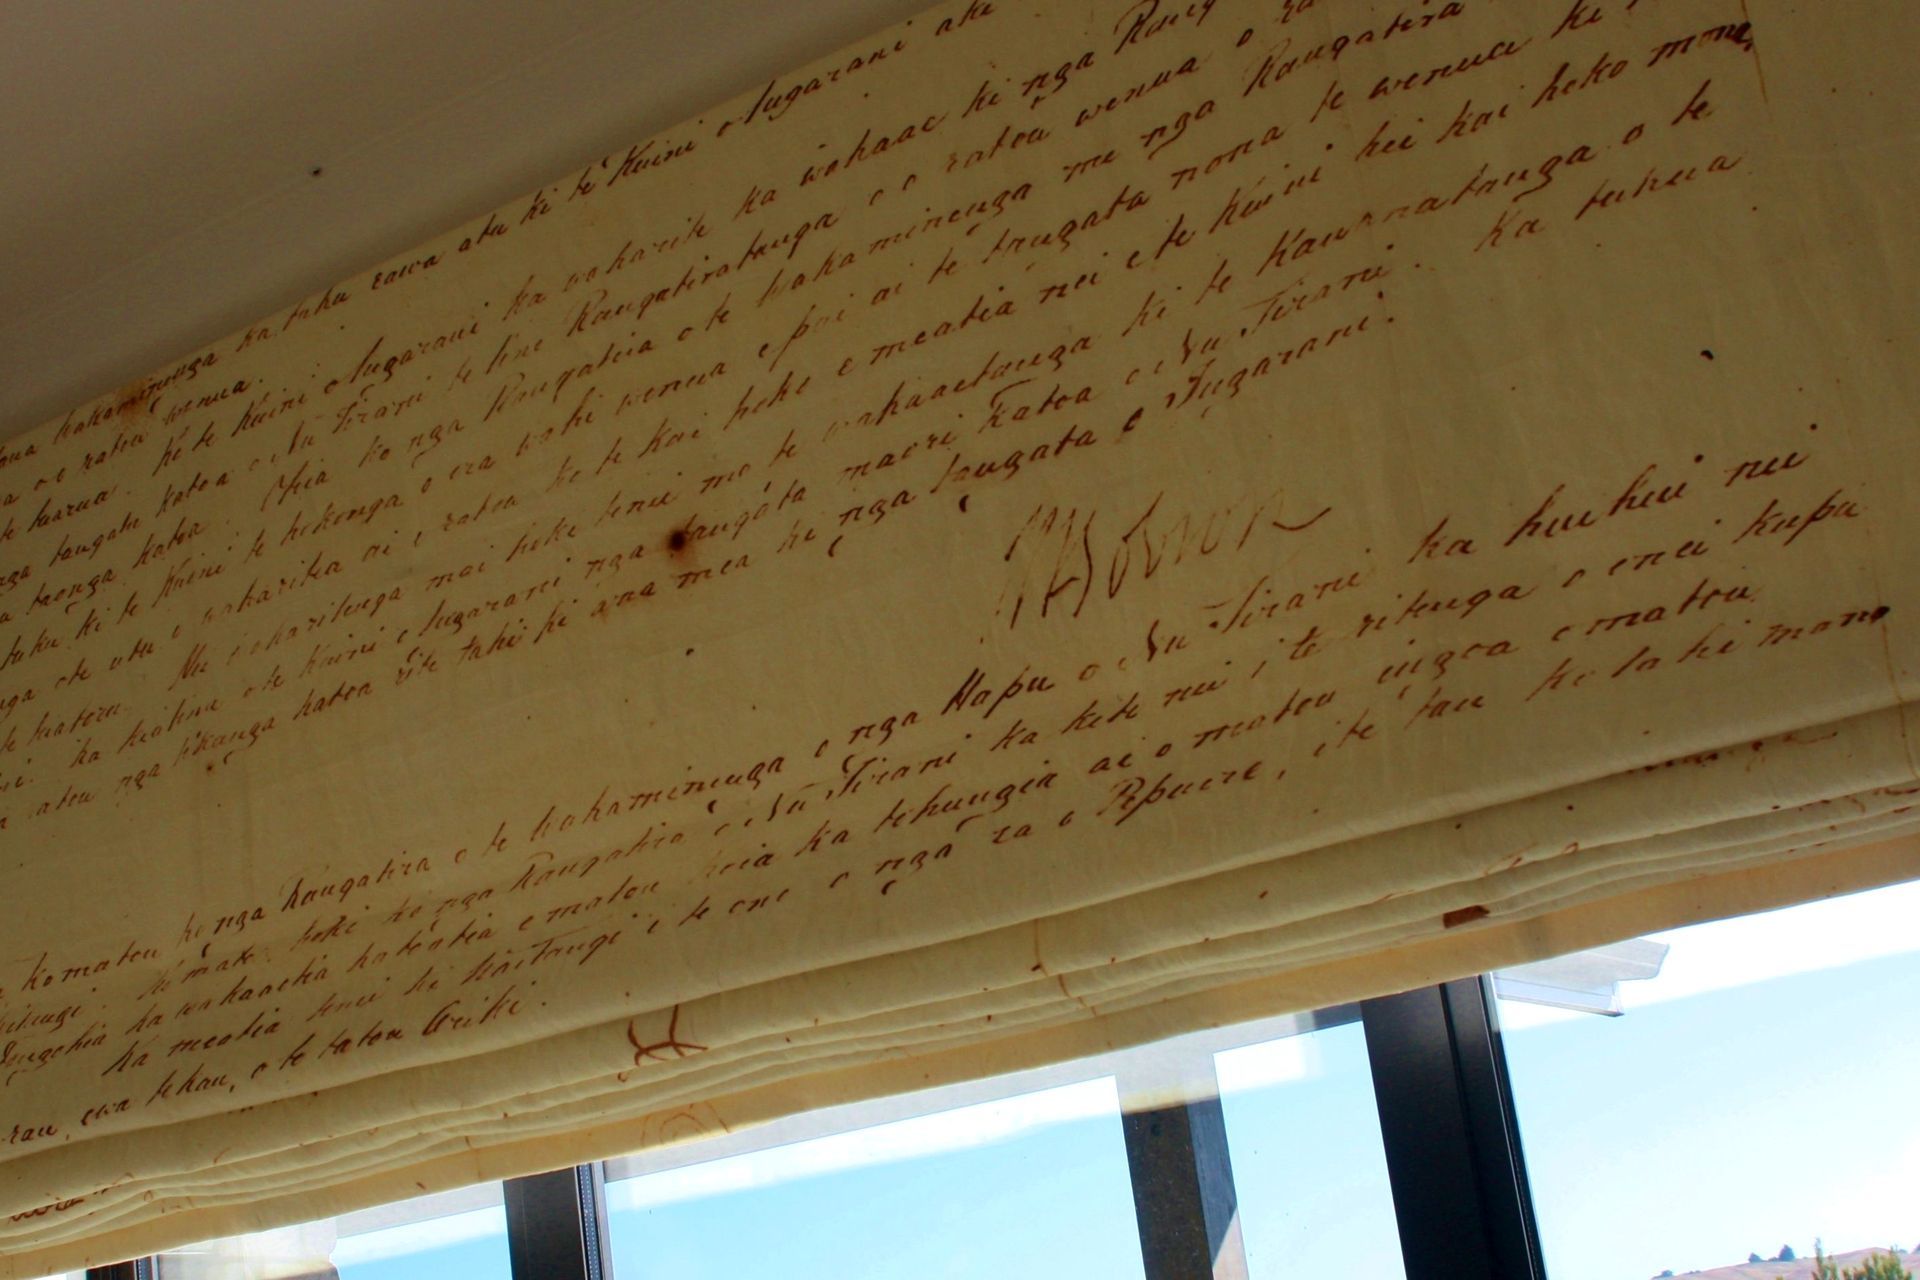 hakaminenga ka tuku rawa atu ki te Kuini o Ingarani ake
o o ratou wenua.
te tuarua. Ko te Kuini o Ingarani ka wakarite ka wakaae ki nga Rang
nga tangata katoa o Nu Tirani te tino Rangatiratanga o o ratou wenua o
taonga katoa. Otiia ko nga Rangatira o te Wakaminenga me nga Rangatira
tuku ki te Kuini te hokonga o era wahi wenua e pai ai te tangata nona te wenua ki
o te utu e wakaritea ai e ratou ko te kai hoko e meatia nei e te Kuini hei kai hoko mona
te tuatoru. Hei wakaritenga mai hoki tenei mo te wakaaetanga ki te Kawanatanga o te
ka tiakina e te Kuini o Ingarani nga tangata maori katoa o Nu Tirani. Ka tukua
ratou nga tikanga katoa rite tahi ki ana mea ki nga tangata o Ingarani.
W Hobson
ko matou ko nga Rangatira o te Wakaminenga o nga Hapu o Nu Tirani ka huihui nei
ko matou hoki ko nga Rangatira o Nu Tirani ka kite nei i te ritenga o enei kupu
tangohia ka wakaaetia katoatia e matou koia ka tohungia ai o matou ingoa o matou
ka meatia tenei ki Waitangi i te ono o nga ra o Pepuere, i te tau ko tahi mano
rau, ewa tekau, o to tatou Ariki.